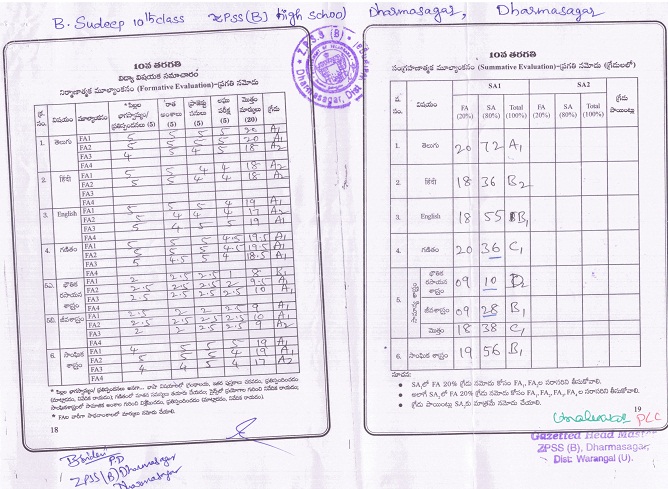 B. Sudeep 10th class ZPSS(B) High school Dharmasagar, Dharmasagar
10వ తరగతి
విద్యా విషయక సమాచారం
నిర్మాణాత్మక మూల్యాంకనం (Formative Evaluation)-ప్రగతి నమోదు
క్ర. సం. విషయం మూల్యాంకనం *పిల్లల భాగస్వామ్యం/ ప్రతిస్పందనలు (5) రాత అంశాలు (5) ప్రాజెక్టు పనులు (5) లఘు పరీక్ష (5) మొత్తం మార్కులు (20) గ్రేడు
1. తెలుగు FA1 5 5 5 5 20 A1
FA2 5 5 5 5 20 A1
FA3 4 5 4 5 18 A2
FA4
2. हिंदी FA1 5 5 4 4 18 A2
FA2 5 5 4 4 18 A2
FA3
FA4
3. English FA1 5 5 5 4 19 A1
FA2 5 4 4 4 17 A2
FA3 5 4 5 5 19 A1
FA4
4. గణితం FA1 5 5 5 4.5 19.5 A1
FA2 5 5 5 4.5 19.5 A1
FA3 5 4.5 5 4 18.5 A1
FA4
5ఎ. భౌతిక రసాయన శాస్త్రం FA1 2 2.5 2.5 1 8 B1
FA2 2.5 2.5 2.5 2 9.5 A1
FA3 2.5 2.5 2.5 2.5 10 A1
FA4
5బి. జీవశాస్త్రం FA1 2.5 2 2 2.5 9 A1
FA2 2.5 2.5 2.5 2.5 10 A1
FA3 2 2 2.5 2.5 9 A2
FA4
6. సాంఘిక శాస్త్రం FA1 4 5 5 5 19 A1
FA2 5 5 5 4 19 A1
FA3 4 4 5 4 17 A2
FA4
18
P.D
ZPSS(B) Dharmasagar
Dharmasagar
ZPSS (B)
Dharmasagar, Dist.
10వ తరగతి
సంగ్రహణాత్మక మూల్యాంకనం (Summative Evaluation)-ప్రగతి నమోదు (గ్రేడులలో)
వ. సం. విషయం SA1 SA2 గ్రేడు పాయింట్లు
FA (20%) SA (80%) Total (100%) FA (20%) SA (80%) Total (100%)
1. తెలుగు 20 72 A1
2. हिंदी 18 36 B2
3. English 18 55 B1
4. గణితం 20 36 C1
5. భౌతిక రసాయన శాస్త్రం 09 10 D2
జీవశాస్త్రం 09 28 B1
మొత్తం 18 38 C1
6. సాంఘిక శాస్త్రం 19 56 B1
సూచన:
19
PLC
Gazetted Head Master
ZPSS (B), Dharmasagar,
Dist: Warangal (U).